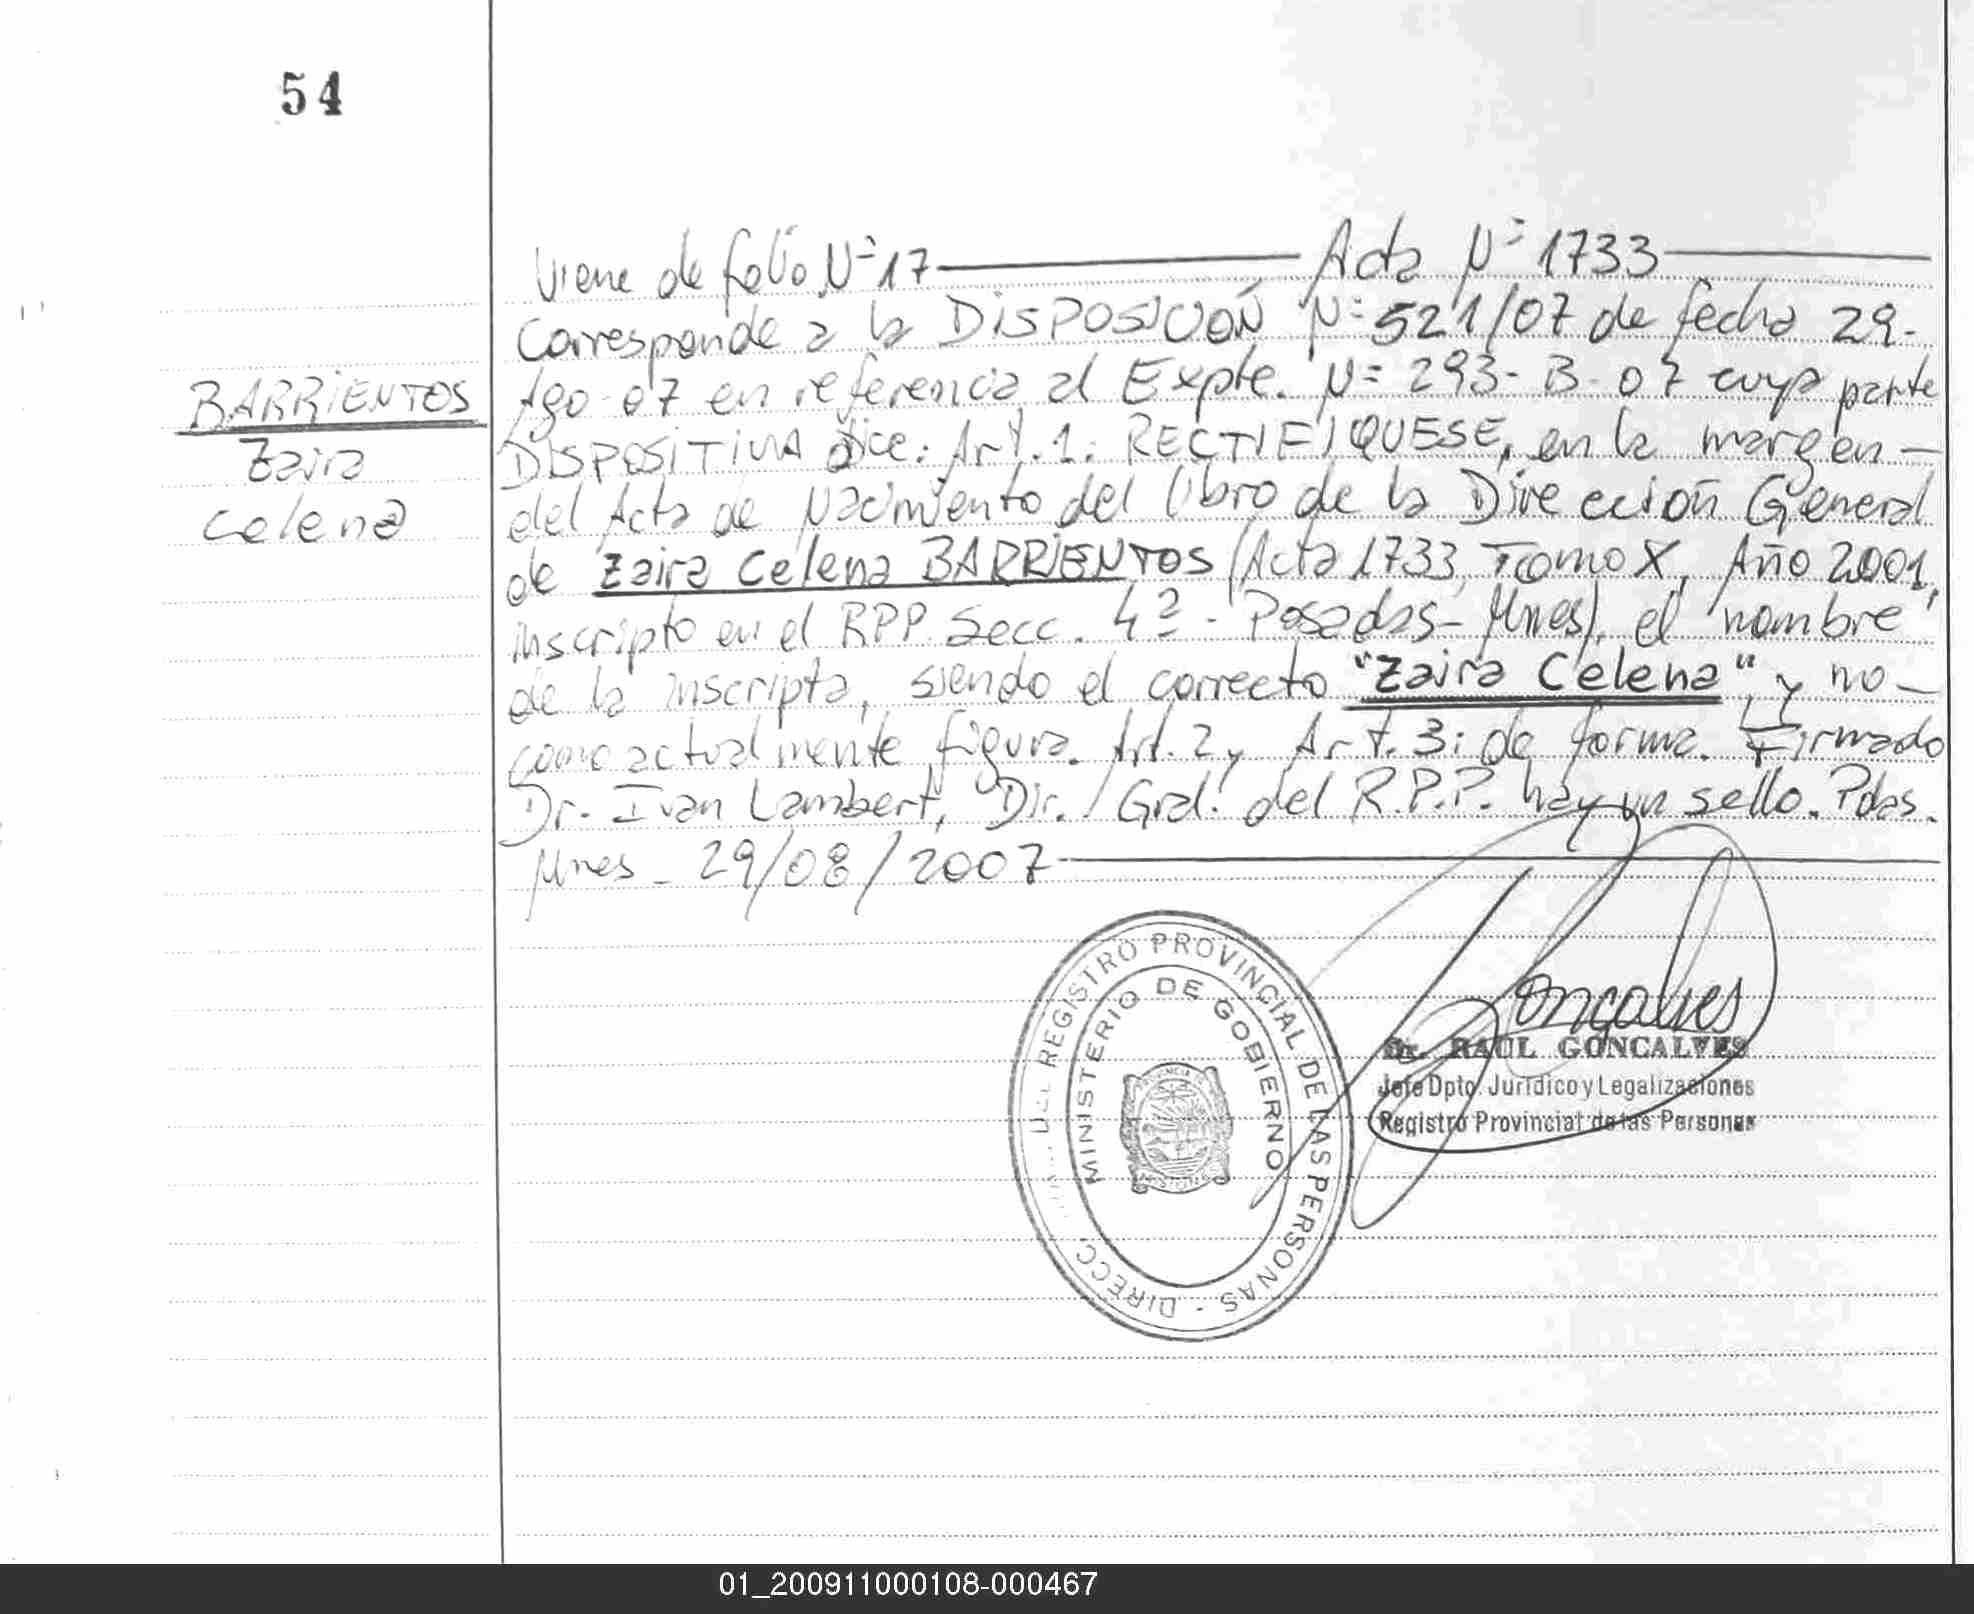 54
BARRIENTOS
Zaira
Celena
Viene de folio Nº 17 Acta Nº 1733
Corresponde a la DISPOSICIÓN Nº 521/07 de fecha 29-
Ago-07 en referencia al Expte. Nº 293-B-07 cuya parte
DISPOSITIVA dice: Art. 1: RECTIFIQUESE, en la margen
del Acta de Nacimiento del libro de la Dirección General
de Zaira Celena BARRIENTOS (Acta 1733, Tomo X, Año 2001,
inscripto en el RPP Secc. 4ª - Posadas - Mnes), el nombre
de la inscripta, siendo el correcto "Zaira Celena", y no
como actualmente figura. Art. 2 y Art. 3: de forma. Firmado
Dr. Ivan Lambert, Dir. Gral. del R.P.P. hay un sello. Pdas.
Mnes - 29/08/2007
REGISTRO PROVINCIAL DE LAS PERSONAS - DIRECC.
MINISTERIO DE GOBIERNO
Goncalves
Dr. RAUL GONCALVES
Jefe Dpto. Jurídico y Legalizaciones
Registro Provincial de las Personas
01_200911000108-000467